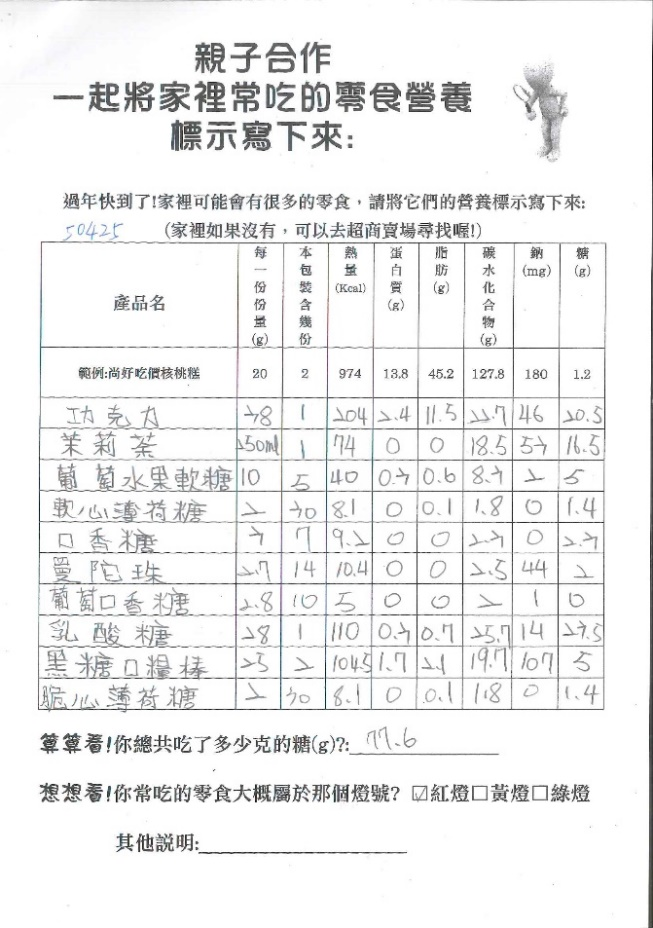 親子合作
一起將家裡常吃的零食營養
標示寫下來:
過年快到了!家裡可能會有很多的零食，請將它們的營養標示寫下來:
50425 (家裡如果沒有，可以去超商賣場尋找喔!)
產品名 每一份份量(g) 本包裝含幾份 熱量(Kcal) 蛋白質(g) 脂肪(g) 碳水化合物(g) 鈉(mg) 糖(g)
範例:尚好吃價核桃糕 20 2 974 13.8 45.2 127.8 180 1.2
巧克力 38 1 204 2.4 11.5 22.7 46 20.5
茉莉茶 250ml 1 74 0 0 18.5 53 16.5
葡萄水果軟糖 10 5 40 0.3 0.6 8.3 2 5
軟心薄荷糖 2 30 8.1 0 0.1 1.8 0 1.4
口香糖 3 7 9.2 0 0 2.3 0 2.3
曼陀珠 2.7 14 10.4 0 0 2.5 44 2
葡萄口香糖 2.8 10 5 0 0 2 1 0
乳酸糖 28 1 110 0.3 0.7 25.7 14 23.5
黑糖口糧棒 25 2 104.5 1.7 2.1 19.7 107 5
脆心薄荷糖 2 30 8.1 0 0.1 1.8 0 1.4
算算看!你總共吃了多少克的糖(g)?: 77.6
想想看!你常吃的零食大概屬於那個燈號? ☑紅燈□黃燈□綠燈
其他說明: